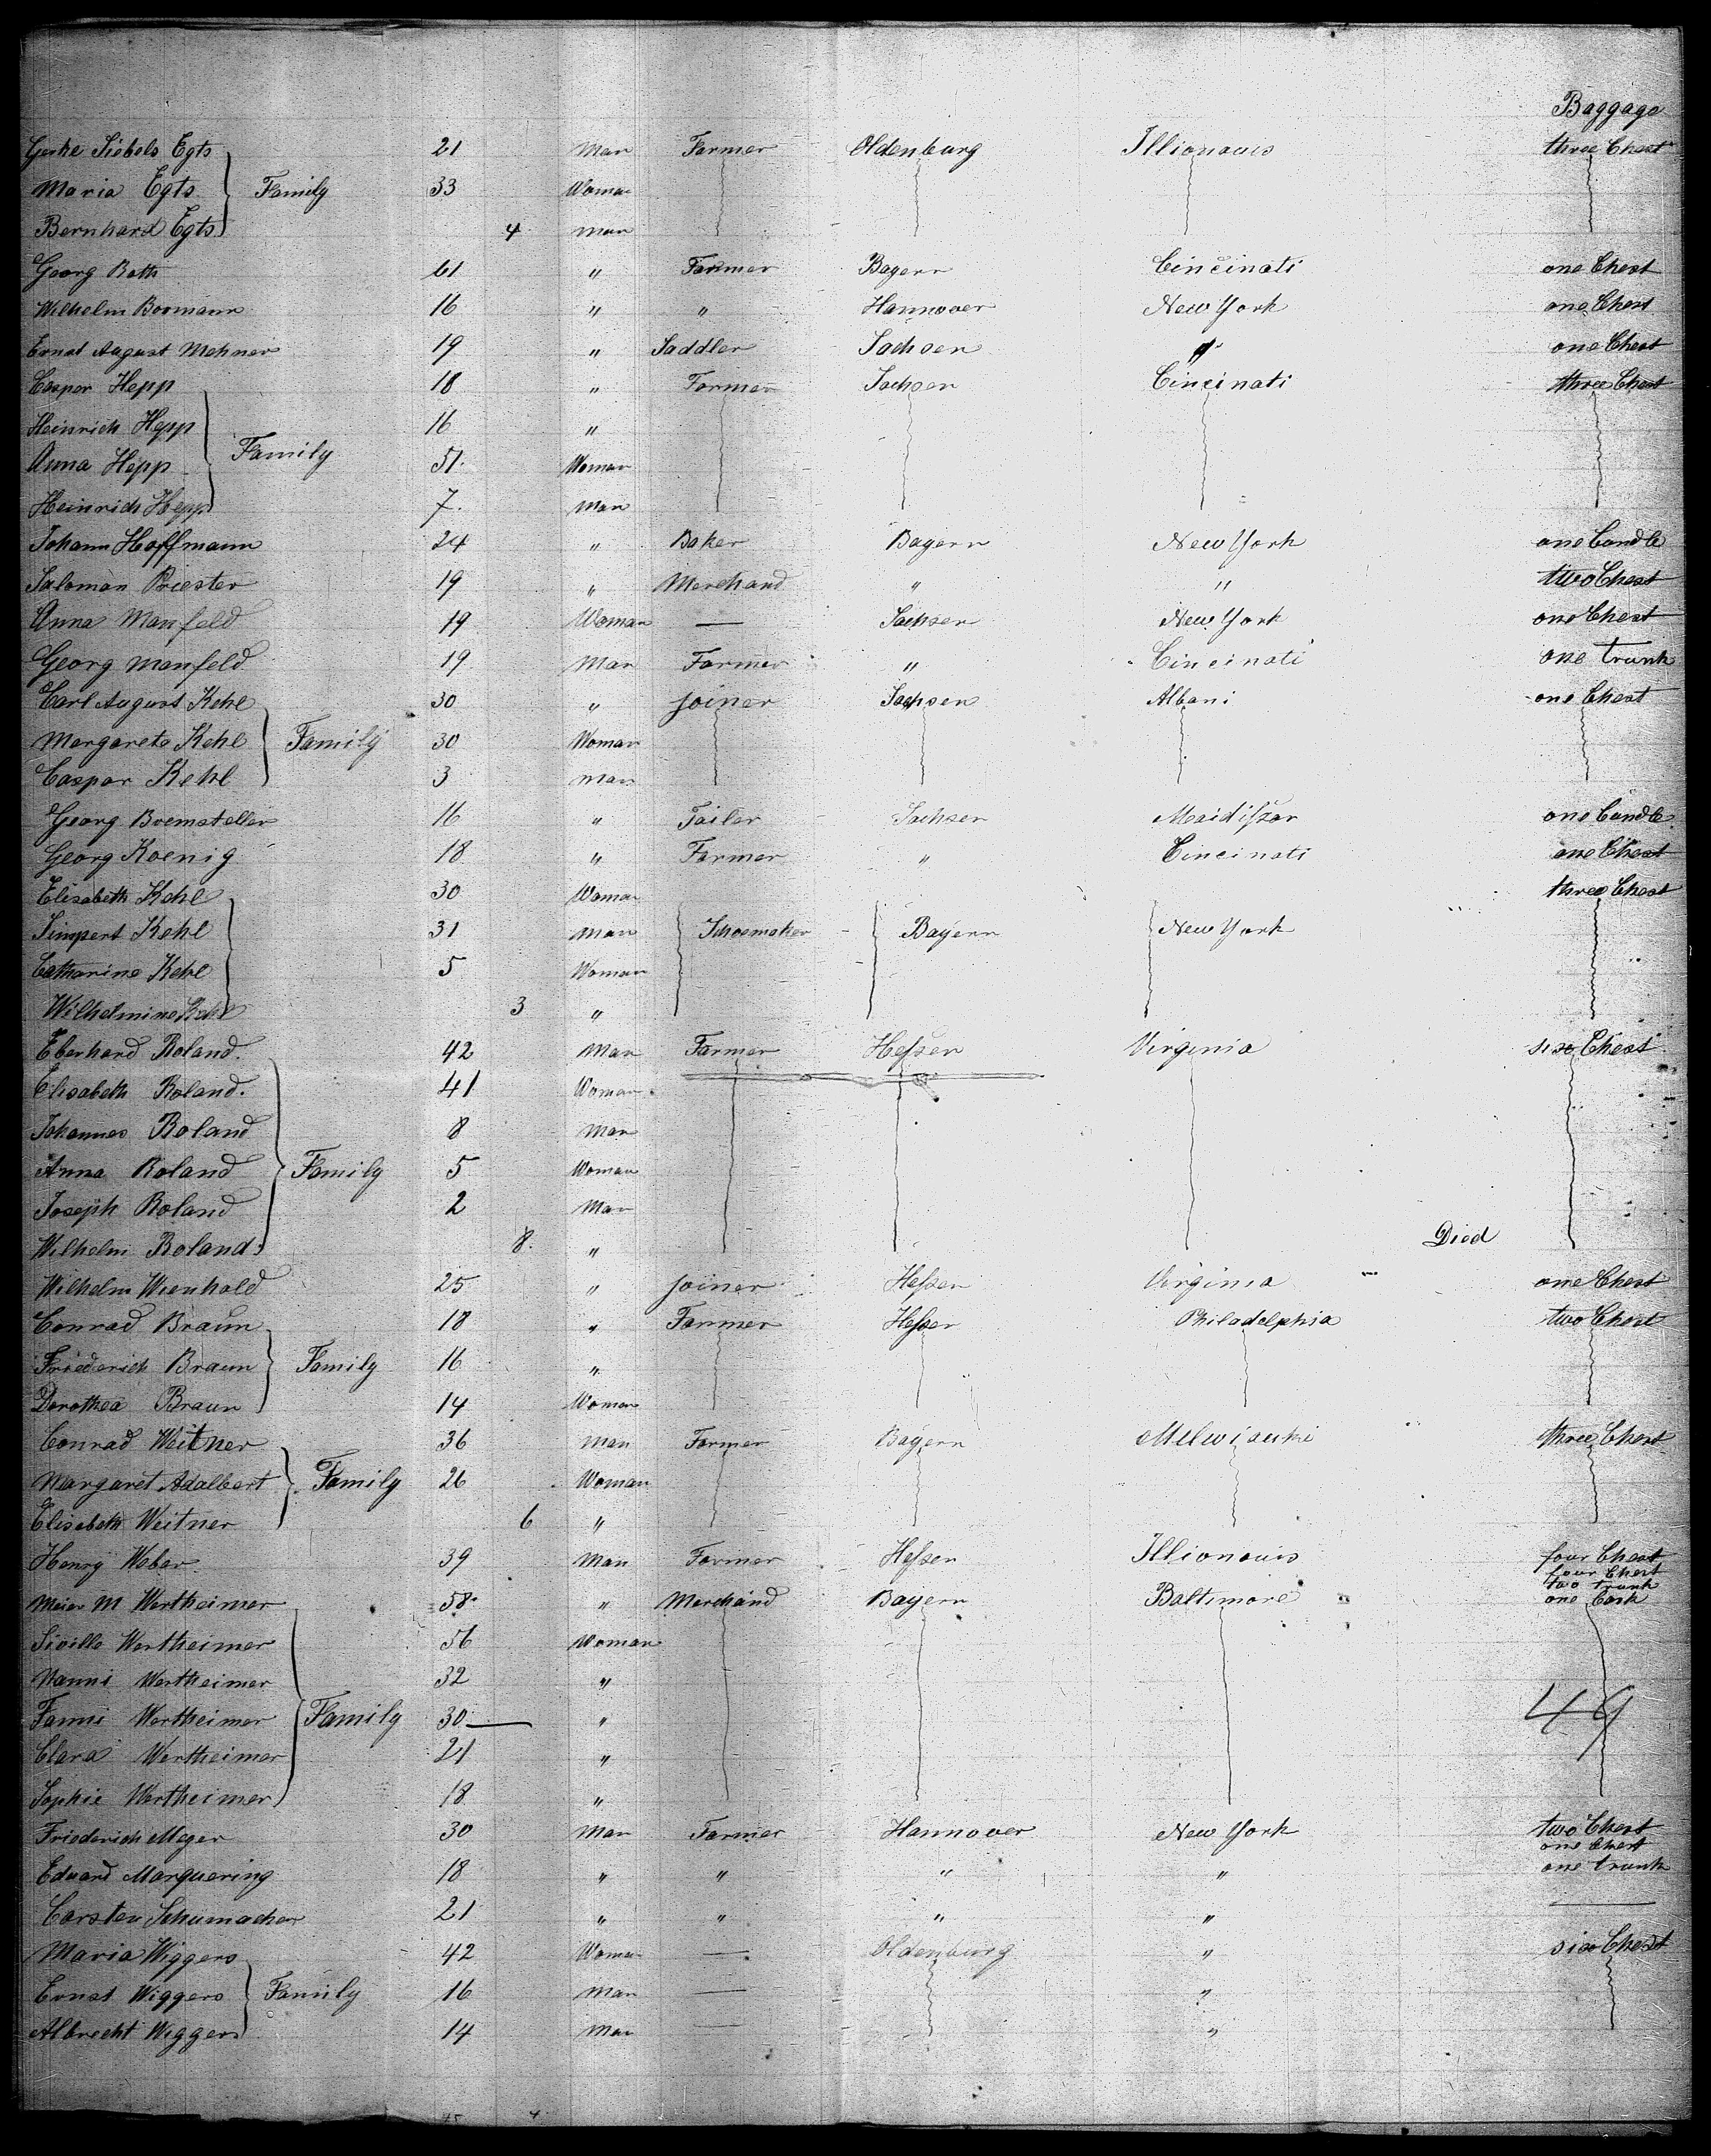 Baggage
Gerke Siebels Egts 21 Man Farmer Oldenburg Illionouis three Chest
Maria Egts Family 33 Woman
Bernhard Egts 4 man
Georg Roth 61 " Farmer Bayern Cincinati one Chest
Wilhelm Boomann 16 " " Hannover New York one Chest
Ernst August Mehner 19 " Saddler Sachsen " one Chest
Caspar Hepp 18 " Farmer Sachsen Cincinati three Chest
Heinrich Hepp 16 "
Anna Hepp Family 51. Woman
Heinrich Hepp 7. Man
Johann Hoffmann 24 " Baker Bayern New York one bundle
Salomon Priester 19 " Merchand " " two Chest
Anna Manfeld 19 Woman — Sachsen New York one Chest
Georg Manfeld 19 Man Farmer " Cincinati one trunk
Carl August Kehl 30 " joiner Sachsen Albani one Chest
Margarete Kehl Family 30 Woman
Caspar Kehl 3 man
Georg Bremsteller 16 " Tailer Sachsen one bundle
Georg Koenig 18 " Farmer " Cincinati one Chest
Elisabeth Kehl 30 Woman three Chest
Simpert Kehl 31 man Schoemaker Bayern New York
Catharine Kehl 5 Woman
Wilhelmine Kehl 3 "
Eberhard Roland. 42 Man Farmer Hessen Virginia six Chest
Elisabeth Roland. 41 Woman
Johannes Roland 8 Man
Anna Roland Family 5 Woman
Joseph Roland 2 Man
Wilhelm Roland. 8. " Died
Wilhelm Wienhold 25 " joiner Hessen Virginia one Chest
Conrad Braun 18 " Farmer Hessen Philadelphia two Chest
Friederich Braun Family 16 "
Dorothea Braun 14 Woman
Conrad Weitner 36 man Farmer Bayern Melwisuki three Chest
Margaret Adalbert Family 26 Woman
Elisabeth Weitner 6 "
Henry Weber. 39 Man Farmer Hessen Illionouis four Chest
four Chest
two trunk
Meier M Wertheimer 58 " Merchand Bayern Baltimore one Cask
Sivilla Wertheimer 56 Woman
Nanni Wertheimer 32 "
Fanni Wertheimer Family 30 — " 49
Clara Wertheimer 21 "
Sophie Wertheimer 18 "
Friederich Meyer 30 Man Farmer Hannover New York two Chest
one Chest
Eduard Marquering 18 " " " " one trunk
Carsten Schumacher 21 " " " " —
Maria Wiggers 42 Woman — Oldenburg " six Chest
Ernst Wiggers Family 16 Man — "
Albrecht Wiggers 14 Man — "